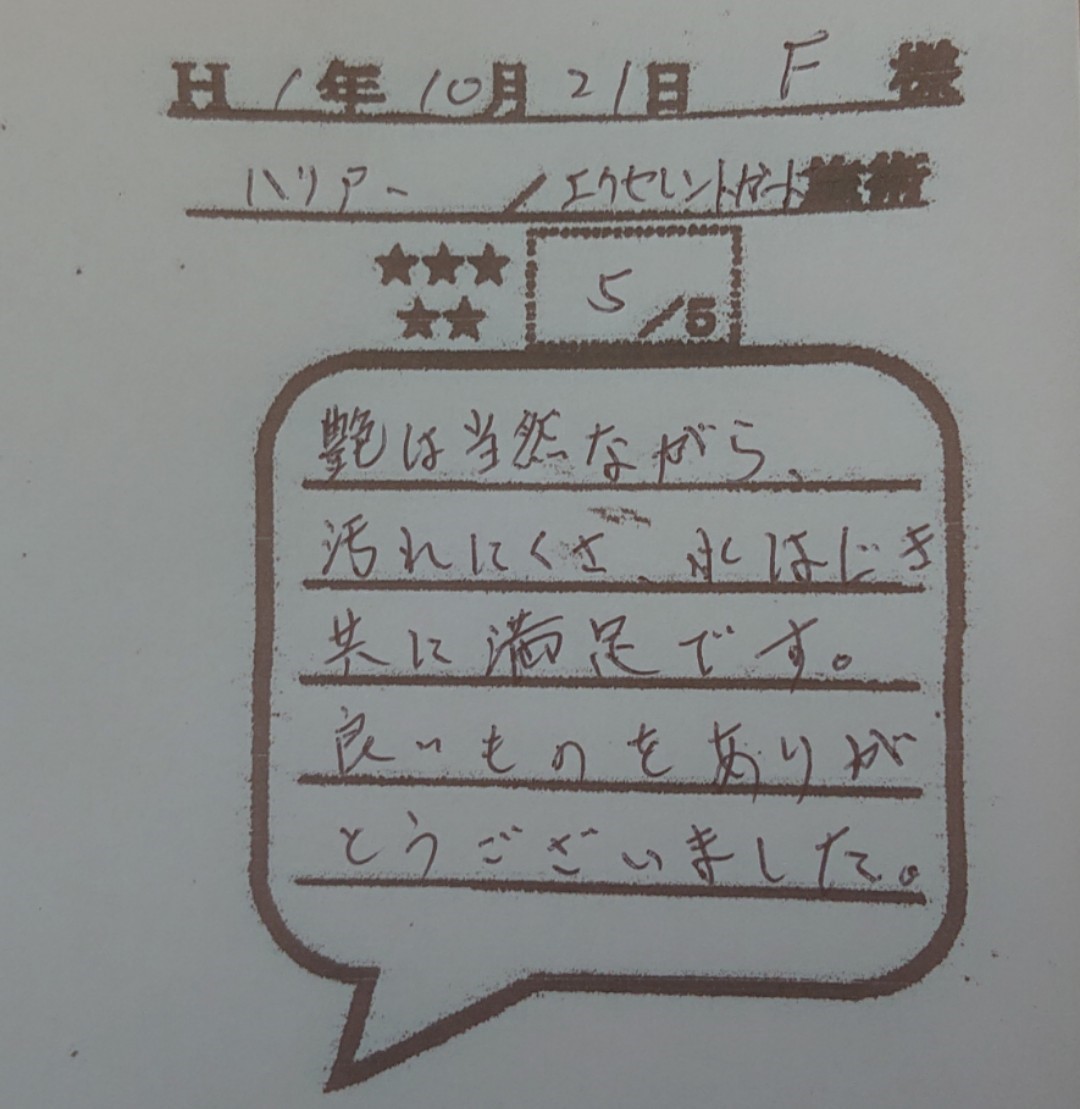 H 1年 10月 21日 F 様
ハリアー / エクセレントガード施術
★★★
★★
5/5
艶は当然ながら、
汚れにくさ、水はじき
共に満足です。
良いものをありが
とうございました。